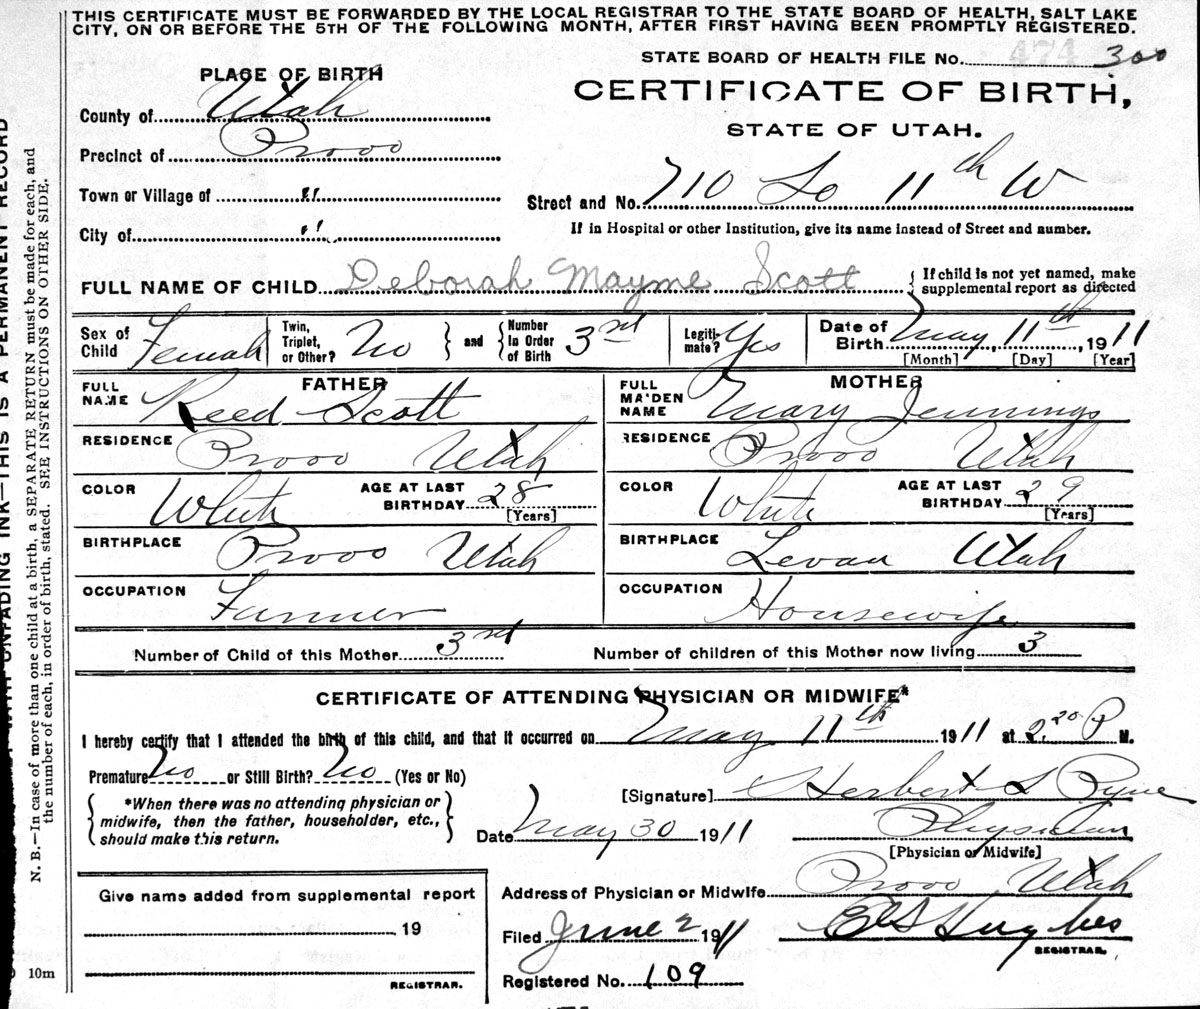 THIS CERTIFICATE MUST BE FORWARDED BY THE LOCAL REGISTRAR TO THE STATE BOARD OF HEALTH, SALT LAKE
CITY, ON OR BEFORE THE 5TH OF THE FOLLOWING MONTH, AFTER FIRST HAVING BEEN PROMPTLY REGISTERED.
STATE BOARD OF HEALTH FILE No. 474 300
PLACE OF BIRTH
CERTIFICATE OF BIRTH,
County of Utah
STATE OF UTAH.
Precinct of Provo
Town or Village of "
Street and No. 710 So 11th W
City of "
If in Hospital or other Institution, give its name instead of Street and number.
FULL NAME OF CHILD Deborah Mayme Scott { If child is not yet named, make
supplemental report as directed
Sex of Child Female Twin, Triplet, or Other? No } and { Number In Order of Birth 3rd Legiti-mate? Yes Date of Birth May 11th, 1911
[Month] [Day] [Year]
FATHER
FULL NAME Reed Scott
RESIDENCE Provo Utah
COLOR White AGE AT LAST BIRTHDAY 28 [Years]
BIRTHPLACE Provo Utah
OCCUPATION Farmer
MOTHER
FULL MAIDEN NAME Mary Jennings
RESIDENCE Provo Utah
COLOR White AGE AT LAST BIRTHDAY 29 [Years]
BIRTHPLACE Levan Utah
OCCUPATION Housewife
Number of Child of this Mother 3rd Number of children of this Mother now living 3
CERTIFICATE OF ATTENDING PHYSICIAN OR MIDWIFE*
I hereby certify that I attended the birth of this child, and that it occurred on May 11th 1911 at 2.20 P M.
Premature No or Still Birth? No (Yes or No)
[Signature] Herbert S Pyne
*When there was no attending physician or
midwife, then the father, householder, etc.,
should make this return.
Date May 30 1911 Physician
[Physician or Midwife]
Give name added from supplemental report
19
REGISTRAR.
Address of Physician or Midwife Provo, Utah
Filed June 2 1911 Hughes
REGISTRAR.
Registered No. 109
10m
N. B.—In case of more than one child at a birth, a SEPARATE RETURN must be made for each, and
the number of each, in order of birth, stated. SEE INSTRUCTIONS ON OTHER SIDE.
UNFADING INK—THIS IS A PERMANENT RECORD